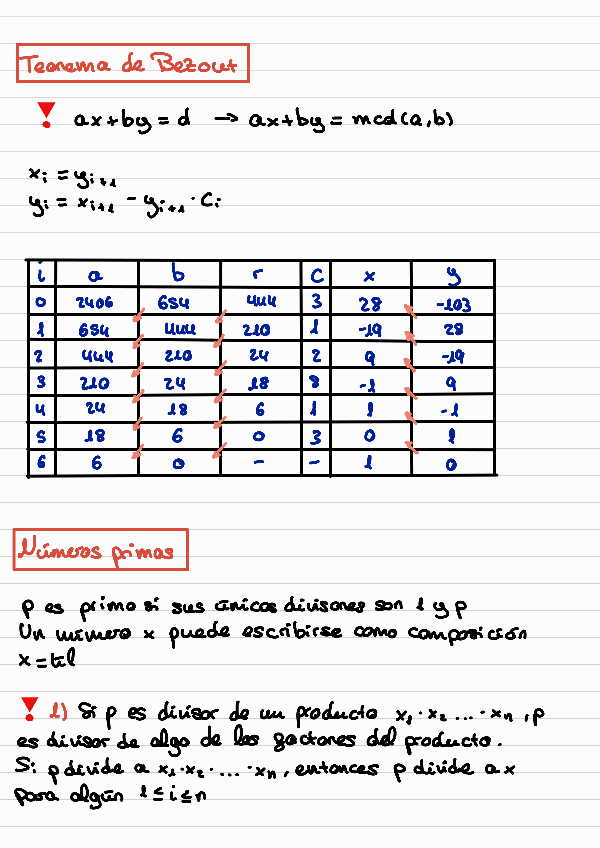 Teorema de Bezout
! ax+by = d → ax+by = mcd(a,b)
xᵢ = yᵢ₊₁
yᵢ = xᵢ₊₁ - yᵢ₊₁ · Cᵢ
i a b r C x y
0 2406 654 444 3 28 -103
1 654 444 210 1 -19 28
2 444 210 24 2 9 -19
3 210 24 18 8 -1 9
4 24 18 6 1 1 -1
5 18 6 0 3 0 1
6 6 0 - - 1 0
Números primos
p es primo si sus únicos divisores son 1 y p
Un número x puede escribirse como composición
x = ±1
! 1) Si p es divisor de un producto x₁ · x₂ ... · xₙ, p
es divisor de algo de los factores del producto.
Si p divide a x₁ · x₂ · ... · xₙ, entonces p divide a x
para algún 1 ≤ i ≤ n